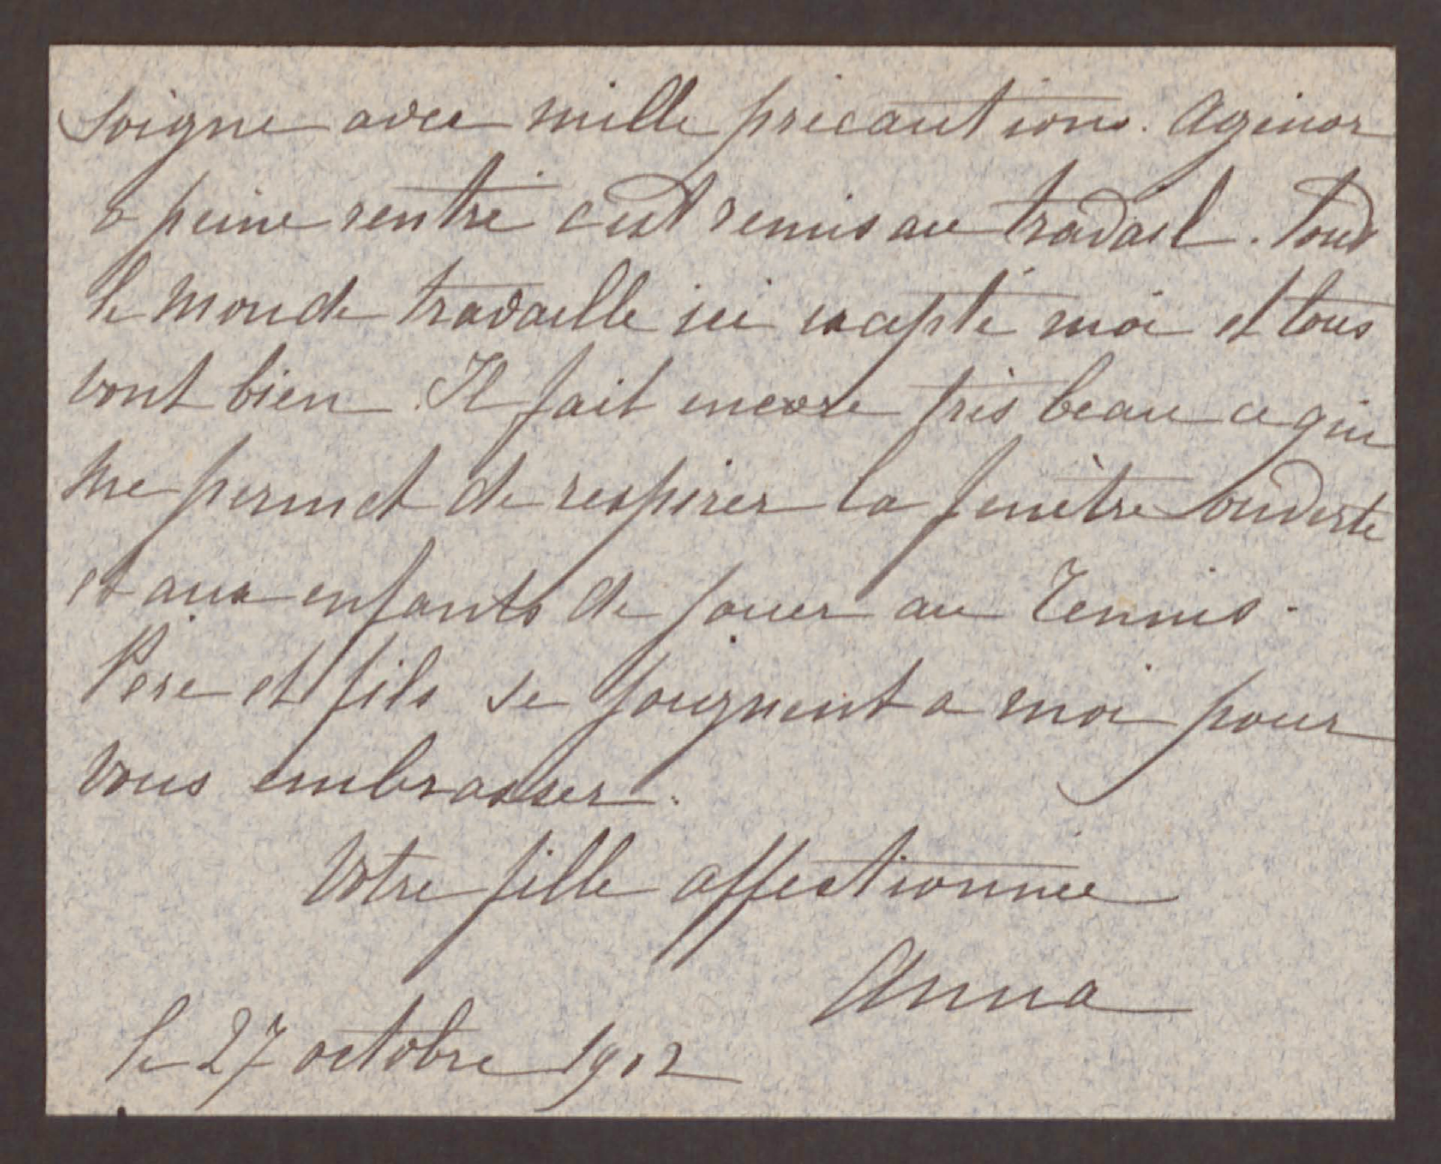 soigne avec mille précautions. Agénor
à peine rentré c'est remis au travail. Tout
le monde travaille ici excepté moi et tous
vont bien. Il fait encore très beau ce qui
me permet de respirer la fenêtre ouverte
et aux enfants de jouer au Tennis.
Père et fils se joignent a moi pour
vous embrasser.
Votre fille affectionnée
Anna
le 27 octobre 1902